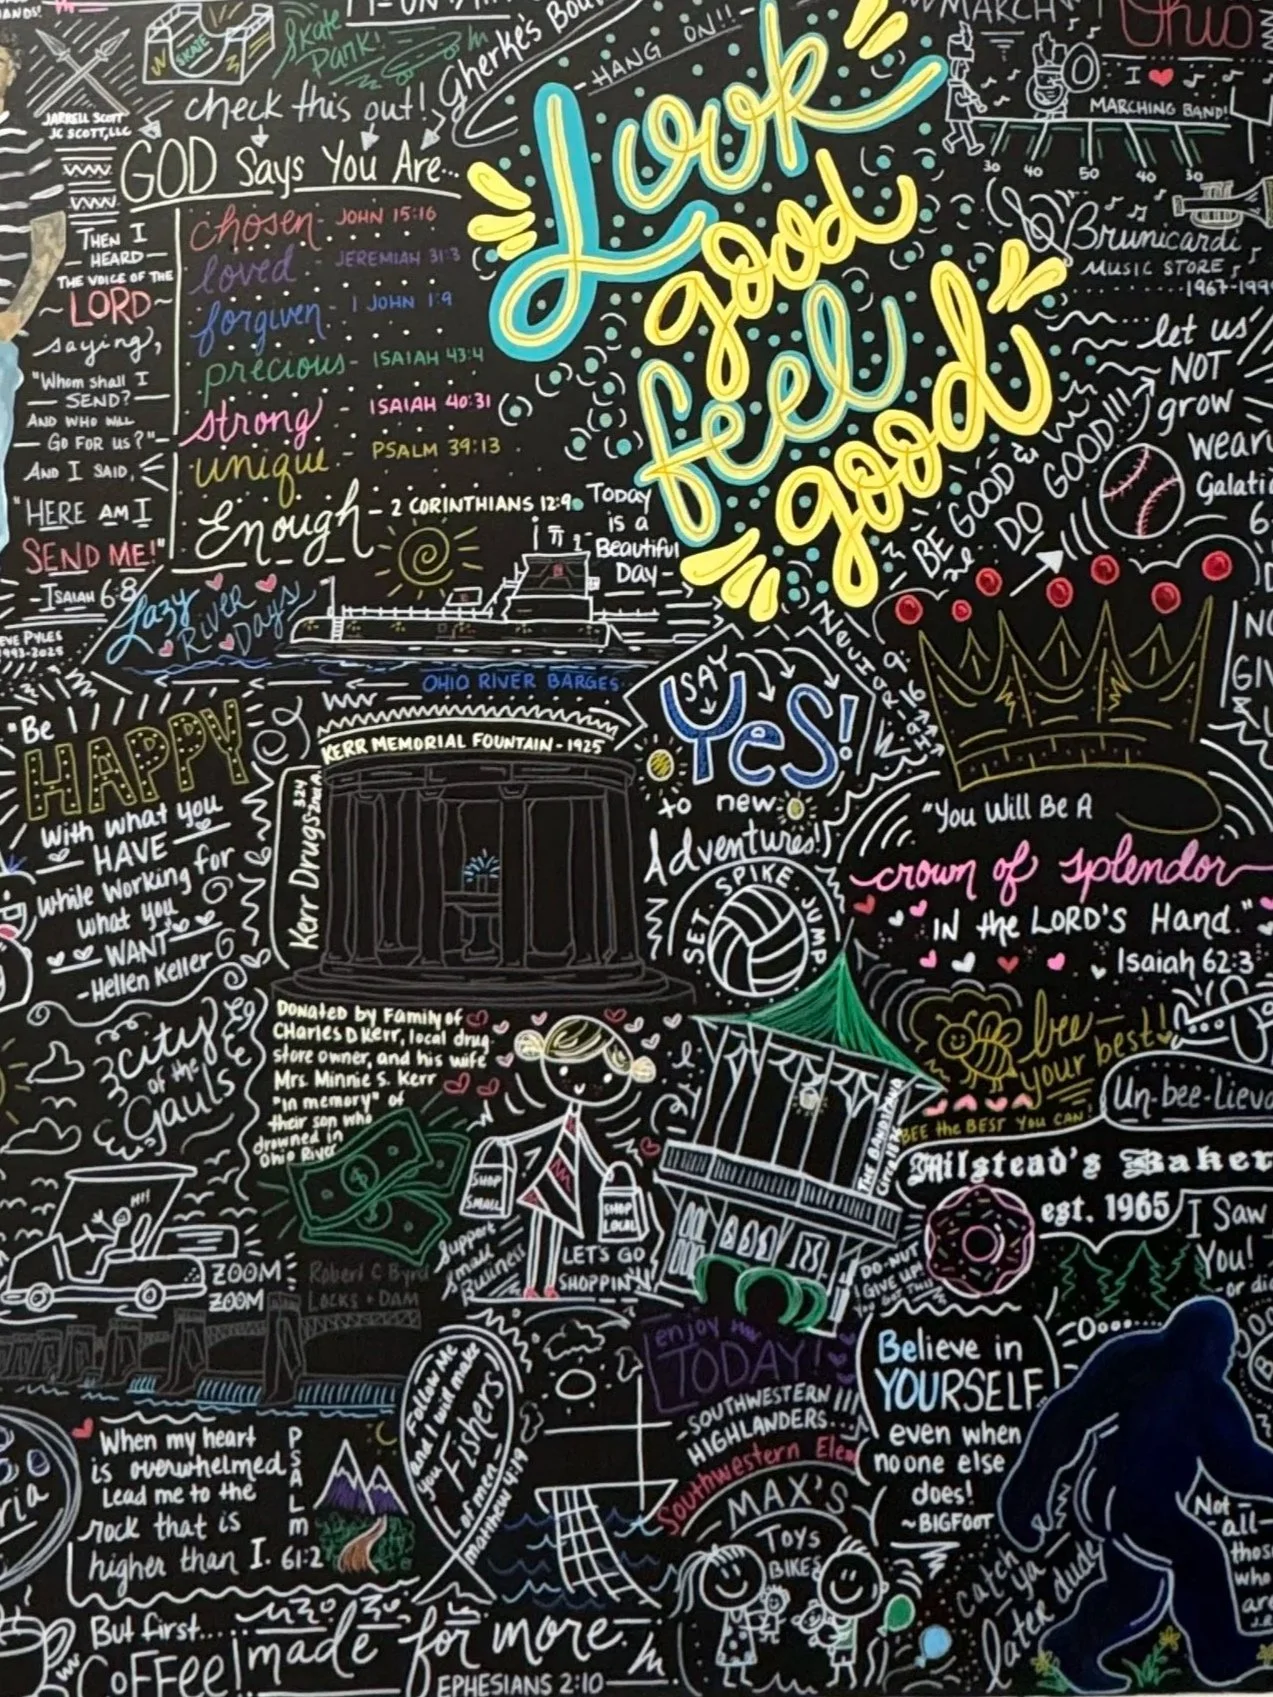 SKATE
Skate
Park!
Gherke's
HANG ON!!-
MARCH
Ohio
I
MARCHING BAND!
30 40 50 40 30
JARRELL SCOTT
JC SCOTT, LLC
check this out!
GOD Says You Are...
chosen - JOHN 15:16
loved - JEREMIAH 31:3
forgiven - 1 JOHN 1:9
precious - ISAIAH 43:4
strong - ISAIAH 40:31
unique - PSALM 39:13
Enough - 2 CORINTHIANS 12:9
THEN I
HEARD
THE VOICE OF THE
~LORD~
saying,
"Whom shall I
SEND?
AND WHO WILL
GO FOR US?"
AND I SAID,
"HERE AM I
SEND ME!"
-ISAIAH 6:8
Look
good
feel
good
Brunicardi
MUSIC STORE
let us
NOT
grow
wear
Galati
6
BE GOOD
DO GOOD!!!
Today
is a
Beautiful
Day-
Lazy
River
Days
PYLES
1993-2025
OHIO RIVER BARGES
"Be
HAPPY
With what you
HAVE
while working for
what you
WANT
-Hellen Keller
KERR MEMORIAL FOUNTAIN - 1925
Kerr Drugs
324
SAY
YES!
to new
Adventures!
SET SPIKE JUMP
NO
GIV
"You Will Be A
crown of splendor
IN the LORD'S Hand."
Isaiah 62:3
City
of the
Gauls
DONATED by FAMILY of
CHARLES D KERR, local drug
store owner, and his wife
Mrs. Minnie S. Kerr
"In memory" of
their son who
drowned in
Ohio River
SHOP
SMALL
SHOP
LOCAL
Support
Small
Business
LET'S GO
SHOPPIN
THE BANDSTAND
Circa
bee
your best!
BEE the BEST YOU CAN!
Un-bee-lieva
Milstead's Baker
est. 1965
DO-NUT
GIVE UP!
YOU GOT THIS
I Saw
You!
-or di
Hi!
ZOOM
ZOOM
Robert C Byrd
LOCKS + DAM
Follow Me
and I will make
you Fishers
of men-
matthew 4:19
enjoy
TODAY!
-SOUTHWESTERN
HIGHLANDERS
Southwestern Elem
MAX'S
TOYS
BIKES
Believe in
YOURSELF
even when
no one else
does!
~BIGFOOT
Not
all
those
who
are
catch
ya
later dude
When my heart
is overwhelmed
Lead me to the
rock that is
higher than I. 61:2
PSALM
But first...
COFFEE!
made for more
EPHESIANS 2:10